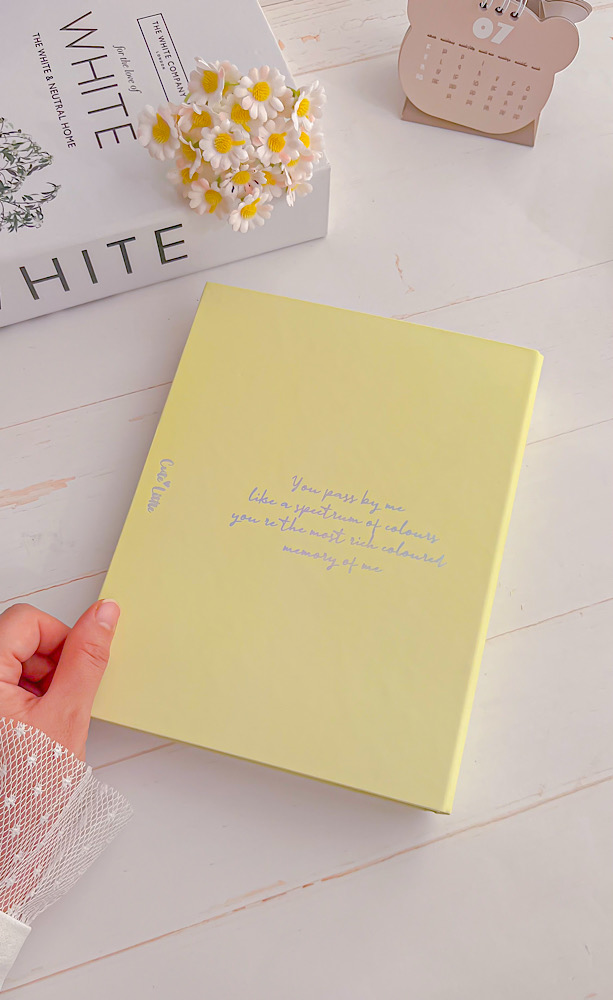 THE WHITE COMPANY
LONDON
for the love of
WHITE
THE WHITE & NEUTRAL HOME
WHITE
07
You pass by me
like a spectrum of colours
you're the most rich coloured
memory of me